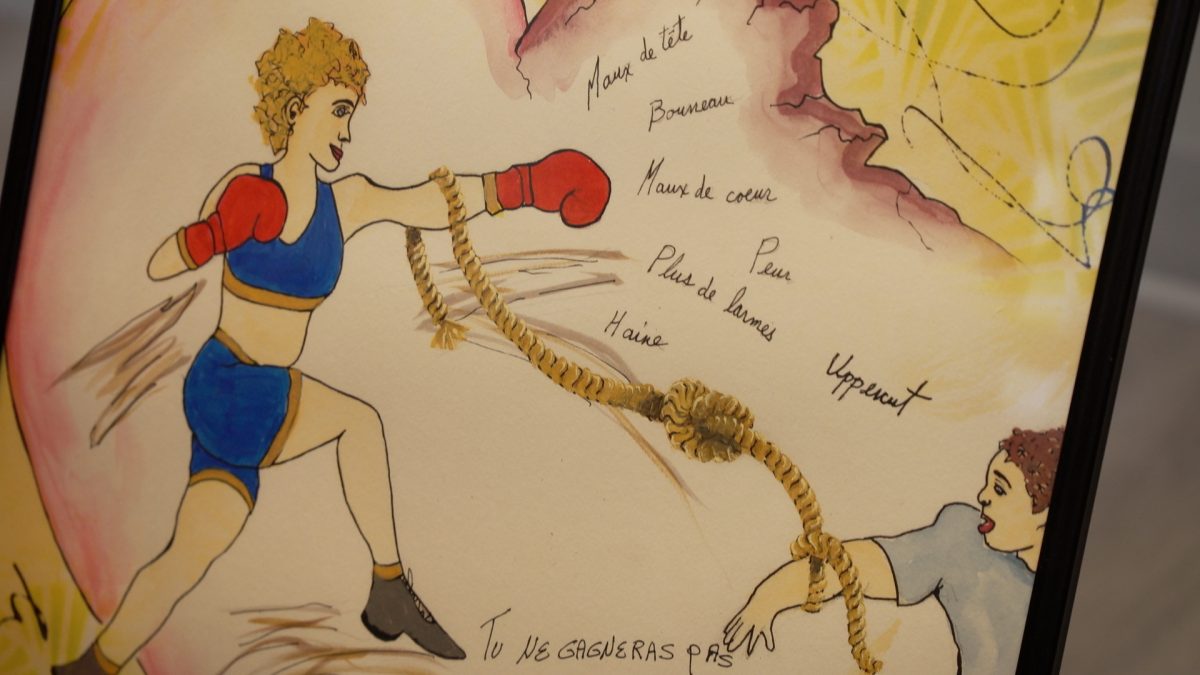 Maux de tête
Bourreau
Maux de coeur
Peur
Plus de larmes
Haine
Uppercut
Tu NE GAGNERAS PAS